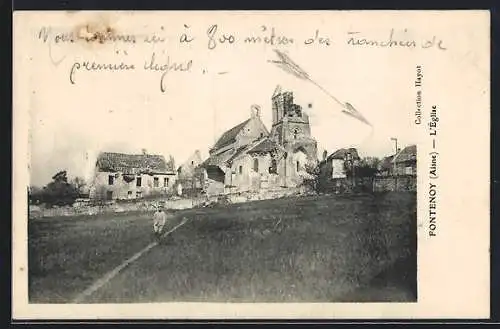 Nous sommes ici à 800 mètres des tranchées de
première ligne.
Collection Hayot
FONTENOY (Aisne) — L'Église